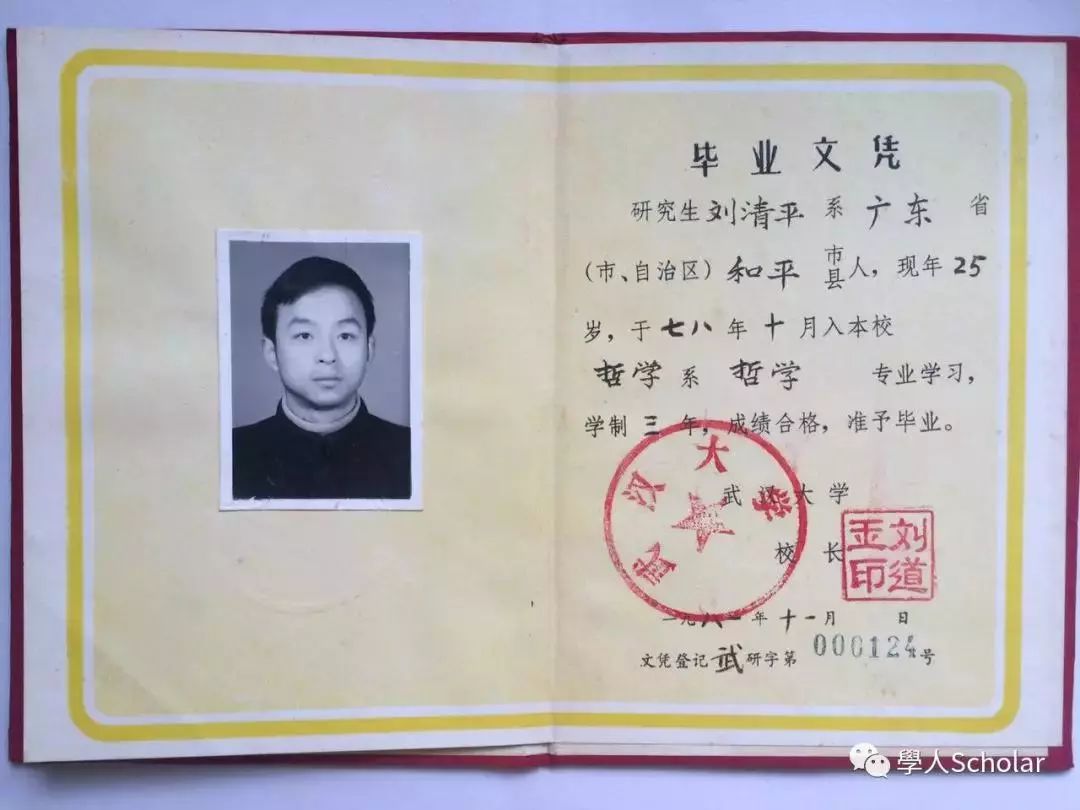 毕业文凭
研究生刘清平系广东省
（市、自治区）和平市县人，现年25
岁，于七八年十月入本校
哲学系哲学专业学习，
学制三年，成绩合格，准予毕业。
武汉大学
武汉大学
校长
刘道玉印
一九八一年十一月日
文凭登记武研字第000124号
學人Scholar